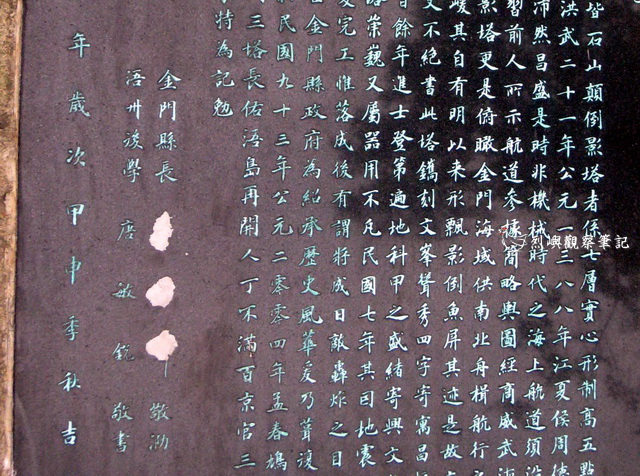 皆石山顛倒影塔者係七層實心形制高五點
洪武二十一年公元一三八八年江夏侯周德
沛然昌盛是時非機械時代之海上航道須沿
習前人所示航道參據簡略輿圖經商威武
影塔更是俯瞰金門海域供南北舟楫航行
峻其自有明以來形飄影倒魚屏其迹是故
文不絕書此塔鐫刻文峯聳秀四字寄寓昌
百餘年進士登第遍地科甲之盛緒寄興文
崇巍又屬器用不凡民國七年其因地震
金門縣政府為紹承歷史風華爰乃葺復
完工惟落成後有謂將成日敵轟炸之日
民國九十三年公元二零零四年孟春鳩
三塔長佑浯島再開人丁不滿百京官三
特為記勉
金門縣長 敬泐
浯州後學 唐敏銳 敬書
年歲次甲申季秋吉
烈嶼觀察筆記